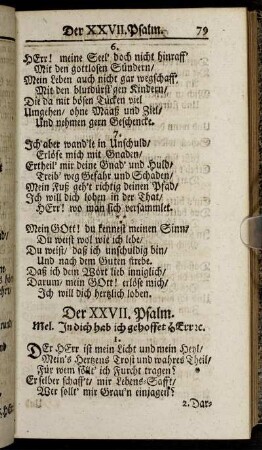 Der XXVII. Psalm. 79
6.
HErr! meine Seel' doch nicht hinraff'
Mit den gottlosen Sündern/
Mein Leben auch nicht gar wegschaff'
Mit den blutdürst'gen Kindern/
Die da mit bösen Tücken viel
Umgehen/ ohne Maaß und Ziel/
Und nehmen gern Geschencke.
7.
Ich aber wandle in Unschuld/
Erlöse mich mit Gnaden/
Ertheil' mir deine Gnad' und Huld/
Treib' weg Gefahr und Schaden/
Mein Fuß geh't richtig deinen Pfad/
Ich will dich loben in der That/
HErr! wo man sich versammlet.
8.
Mein GOtt! du kennest meinen Sinn/
Du weist wol wie ich lebe/
Du weist/ daß ich unschuldig bin/
Und nach dem Guten strebe.
Daß ich dein Wort lieb inniglich/
Darum/ mein GOtt! erlöse mich/
Ich will dich hertzlich loben.
Der XXVII. Psalm.
Mel. In dich hab ich gehoffet HErr ꝛc.
1.
DEr HErr ist mein Licht und mein Heyl/
Mein's Hertzens Trost und wahres Theil/
Für wem sollt' ich Furcht tragen?
Er selber schafft/ mir Lebens-Safft/
Wer sollt' mir Grau'n einjagen?
2. Dar-